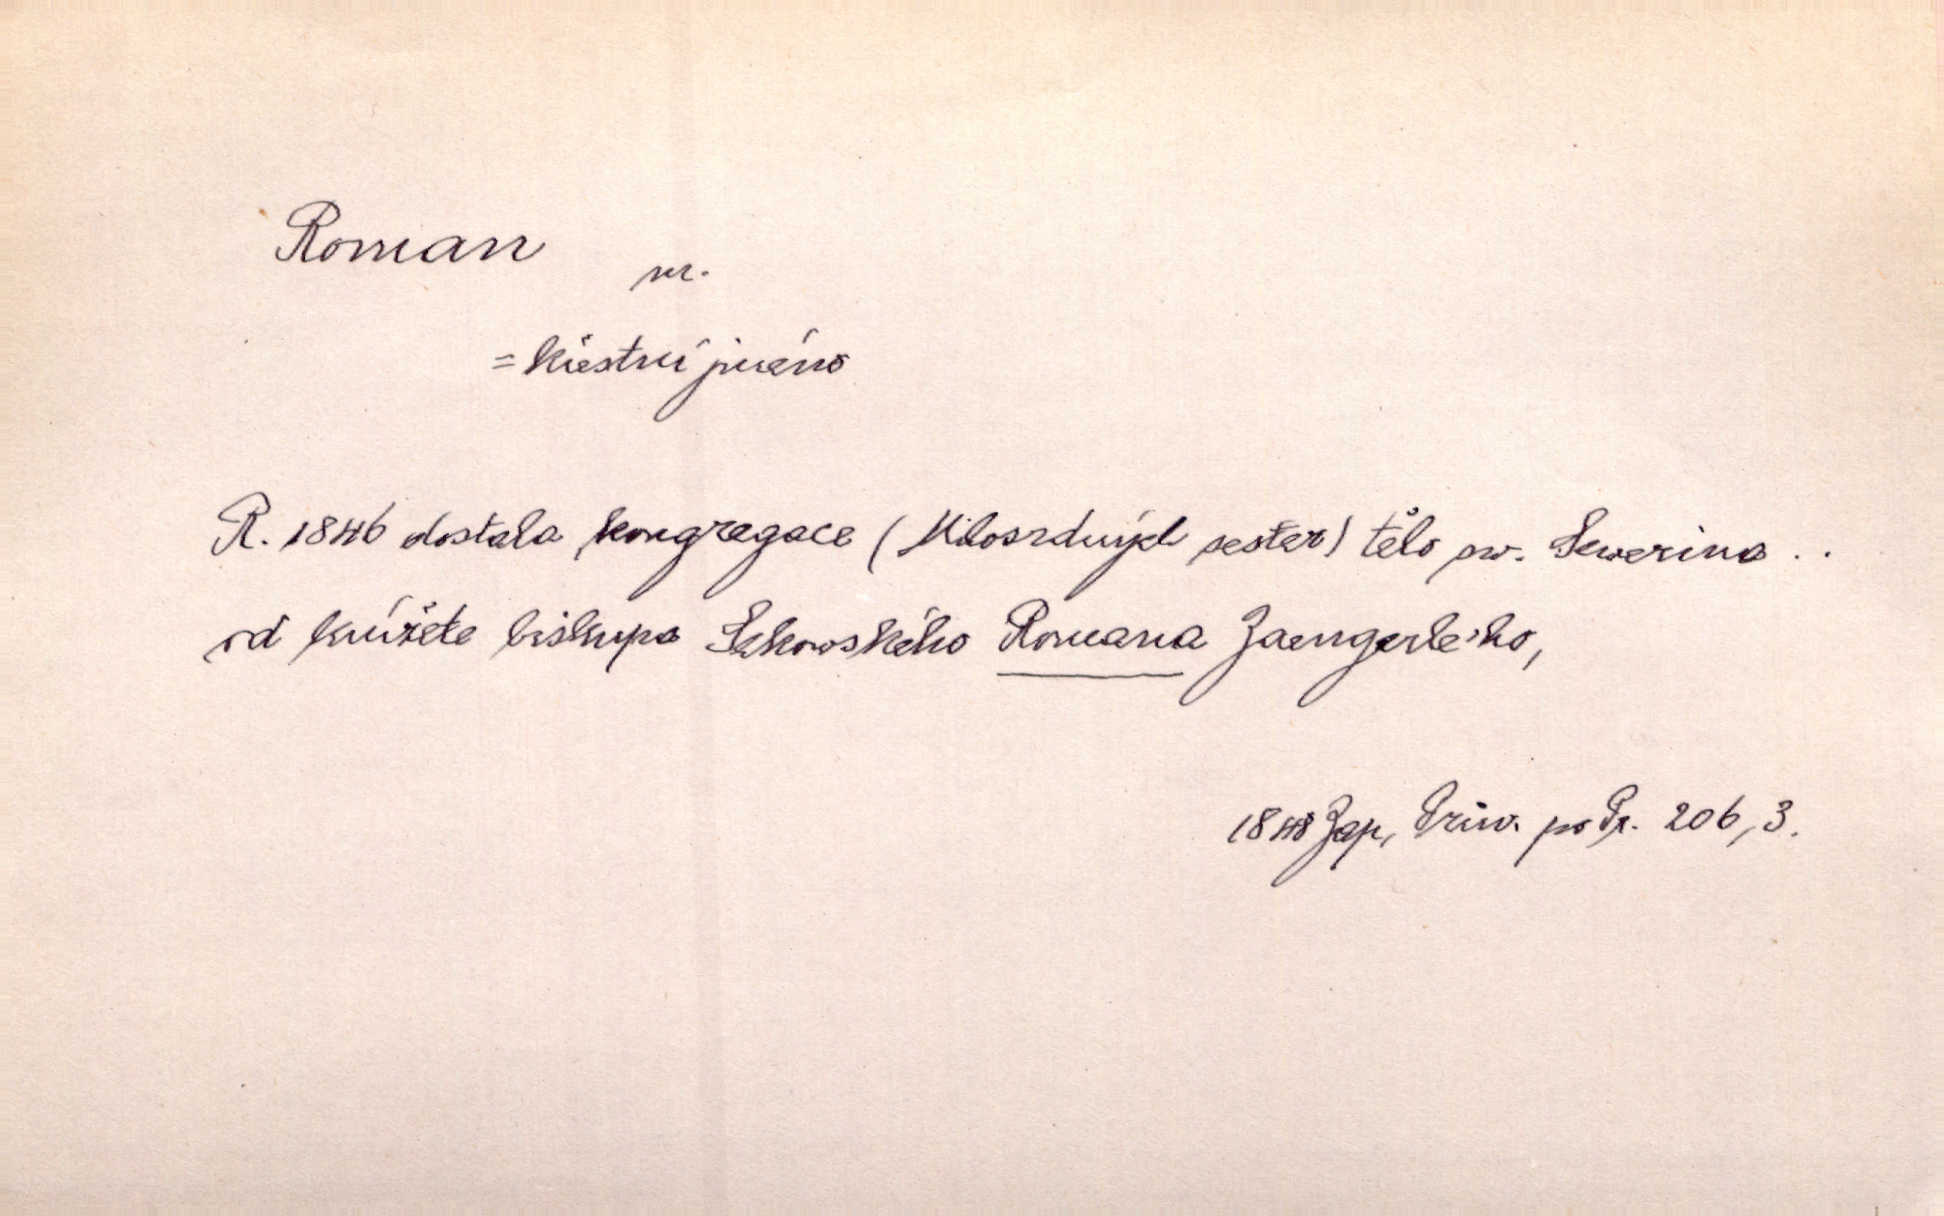 Roman m.
= křestní jméno
R. 1846 dostala kongregace (Milosrdných sester) tělo sv. Severina ..
od knížete biskupa Sekovského Romana Zaengerle-ho,
1848 Zap, Prův. po Pr. 206, 3.